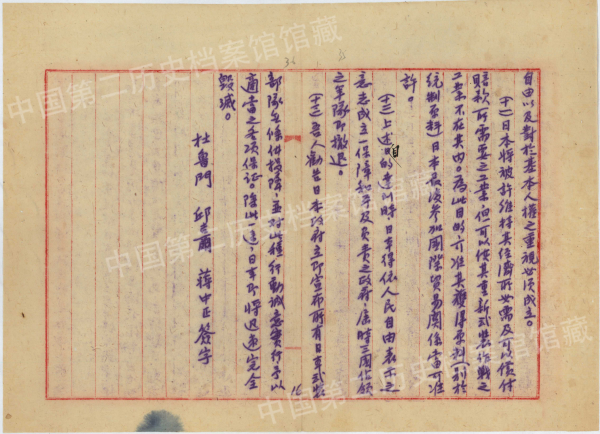 中国第二历史档案馆馆藏
自由以及對於基本人權之重視必須成立。
(十一)日本將被許維持其經濟所必需及可以償付
賠款所需要之工業,但可以使其重新武裝作戰之
工業不在其內。為此目的,可准其獲得原料(別於
統制原料)日本最後參加國際貿易關係當可准
許。
(十二)上述目的達到時日本得依人民自由表示之
意志成立一保障和平及負責之政府,屆時三國佔領
之軍隊即撤退。
(十三)吾人勸告日本政府立即宣布所有日軍武裝
部隊無條件投降,並對此種行動誠意實行予以
適當之各項保證。除此一途,日本即將迅速完全
毀滅。
杜魯門 邱吉爾 蔣中正 簽字
16
中国第二历史档案馆馆藏
中国第二历史档案馆馆藏